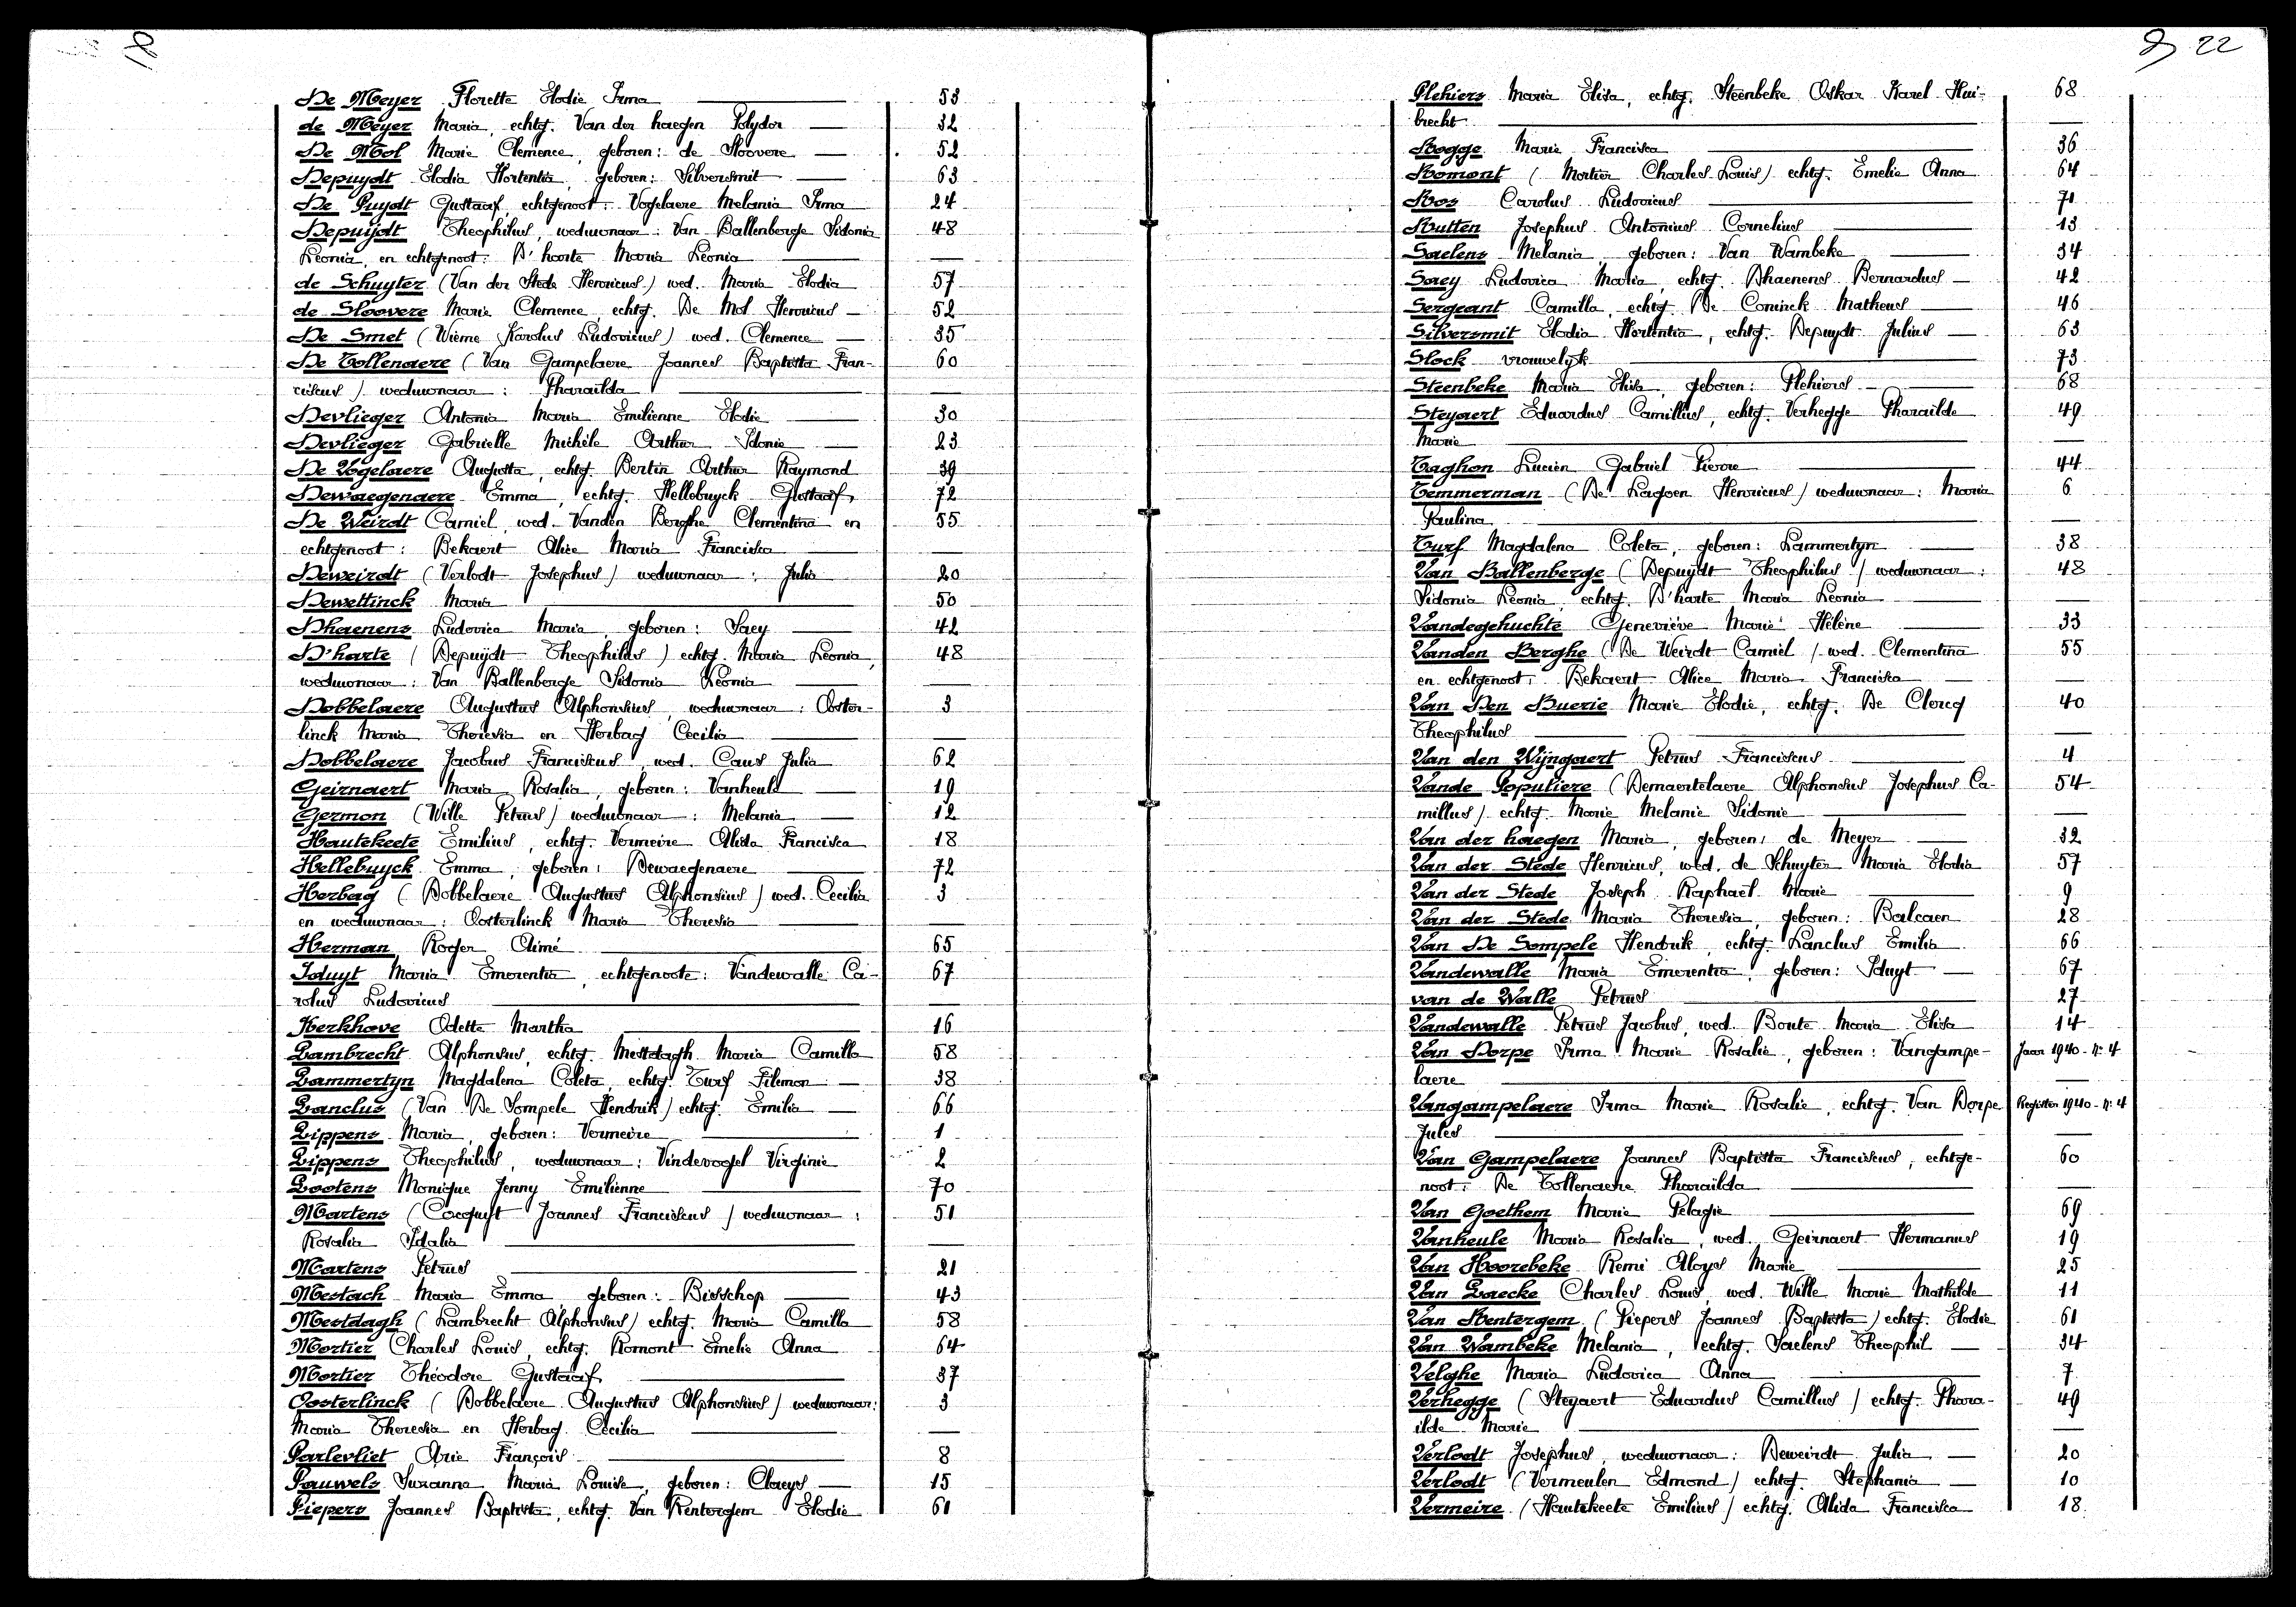 De Meyer Florette Elodie Irma 53
de Meyer Maria, echtg. Van der haegen Polydor 32
De Mol Marie Clemence, geboren: de Sloovere 52
Depuydt Elodia Hortentia, geboren: Silversmit 63
De Puydt Gustaaf, echtgenoot: Vogelaere Melania Irma 24
Depuijdt Theophilus, weduwnaar: Van Ballenberge Sidonia 48
Leonia, en echtgenoot: D'harte Maria Leonia
de Schuyter (Van der Stede Henricus) wed. Maria Elodia 57
de Sloovere Marie Clemence, echtg. De Mol Henricus 52
De Smet (Wieme Karolus Ludovicus) wed. Clemence 35
De Tollenaere (Van Gampelaere Joannes Baptista Fran- 60
ciscus) weduwnaar: Pharaïlda
Devlieger Antonia Maria Emilienne Elodie 30
Devlieger Gabrielle Michèle Arthur Idonie 23
De Vogelaere Augusta, echtg. Bertin Arthur Raymond 39
Dewaegenaere Emma, echtg. Hellebuyck Gustaaf 72
De Weirdt Camiel, wed. Vanden Berghe Clementina en 55
echtgenoot: Bekaert Alice Maria Francisca
Deweirdt (Verlodt Josephus) weduwnaar: Julia 20
Dewettinck Maria 50
Dhaenens Ludovica Maria, geboren: Saey 42
D'harte (Depuijdt Theophilus) echtg. Maria Leonia, 48
weduwnaar: Van Ballenberge Sidonia Leonia
Dobbelaere Augustus Alphonsius, weduwnaar: Ooster- 3
linck Maria Theresia en Herbag Cecilia
Dobbelaere Jacobus Franciscus, wed. Caus Julia 62
Geirnaert Maria Rosalia, geboren: Vanheule 19
Germon (Wille Petrus) weduwnaar: Melania 12
Hautekeete Emilius, echtg. Vermeire Alida Francisca 18
Hellebuyck Emma, geboren: Dewaegenaere 72
Herbag (Dobbelaere Augustus Alphonsius) wed. Cecilia 3
en weduwnaar: Oosterlinck Maria Theresia
Herman Roger Aimé 65
Iduyt Maria Emerentia, echtgenoote: Vandewalle Ca- 67
rolus Ludovicus
Kerkhove Odette Martha 16
Lambrecht Alphonsus, echtg. Mestdagh Maria Camilla 58
Lammertyn Magdalena Coleta, echtg. Turf Filemon 38
Lanclus (Van De Sompele Hendrik) echtg. Emilia 66
Lippens Maria, geboren: Vermeire 1
Lippens Theophilus, weduwnaar: Vindevogel Virginie 2
Lootens Monique Jenny Emilienne 70
Martens (Cocquyt Joannes Franciscus) weduwnaar: 51
Rosalia Idalia
Martens Petrus 21
Mestach Maria Emma geboren: Bisschop 43
Mestdagh (Lambrecht Alphonsus) echtg. Maria Camilla 58
Mortier Charles Louis, echtg. Romont Emelie Anna 64
Mortier Théodore Gustaaf 37
Oosterlinck (Dobbelaere Augustus Alphonsius) weduwnaar: 3
Maria Theresia en Herbag Cecilia
Parlevliet Arie François 8
Pauwels Suzanne Maria Louise, geboren: Claeys 15
Piepers Joannes Baptista, echtg. Van Rentergem Elodie 61
22
Plehiers Maria Elisa, echtg. Steenbeke Oskar Karel Hui- 68
brecht
Rogge Marie Francisca 36
Romont (Mortier Charles-Louis) echtg. Emelie Anna 64
Ros Carolus Ludovicus 71
Rutten Josephus Antonius Cornelius 13
Saelens Melania, geboren: Van Wambeke 34
Saey Ludovica Maria, echtg. Dhaenens Bernardus 42
Sergeant Camilla, echtg. De Coninck Matheus 46
Silversmit Elodia Hortentia, echtg. Depuydt Julius 63
Slock vrouwelijk 73
Steenbeke Maria Elisa, geboren: Plehiers 68
Steyaert Eduardus Camillus, echtg. Verhegge Pharaïlde 49
Marie
Taghon Lucien Gabriel Pierre 44
Temmerman (De Lagoen Henricus) weduwnaar: Maria 6
Paulina
Turf Magdalena Coleta, geboren: Lammertyn 38
Van Ballenberge (Depuijdt Theophilus) weduwnaar: 48
Sidonia Leonia, echtg. D'harte Maria Leonia
Vandegehuchte Geneviève Marie Hélène 33
Vanden Berghe (De Weirdt Camiel) wed. Clementina 55
en echtgenoot: Bekaert Alice Maria Francisca
Van Den Buerie Marie Elodie, echtg. De Clercq 40
Theophilus
Van den Wijngaert Petrus Franciscus 4
Vande Populiere (Demaertelaere Alphonsius Josephus Ca- 54
millus) echtg. Marie Melanie Sidonie
Van der haegen Maria, geboren: de Meyer 32
Van der Stede Henricus, wed. de Schuyter Maria Elodia 57
Van der Stede Joseph Raphaël Marie 9
Van der Stede Maria Theresia, geboren: Balcaen 28
Van De Sompele Hendrik, echtg. Lanclus Emilia 66
Vandewalle Maria Emerentia, geboren: Iduyt 67
van de Walle Petrus 27
Vandewalle Petrus Jacobus, wed. Bonte Maria Elisa 14
Van Dorpe Irma Marie Rosalie, geboren: Vangampe- Jaar 1940 - nr 4
laere
Vangampelaere Irma Marie Rosalie, echtg. Van Dorpe Register 1940 - nr 4
Jules
Van Gampelaere Joannes Baptista Franciscus, echtge- 60
noot: De Tollenaere Pharaïlda
Van Goethem Marie Pelagie 69
Vanheule Maria Rosalia, wed. Geirnaert Hermanus 19
Van Hoorebeke Remi Aloys Marie 25
Van Laecke Charles Louis, wed. Wille Marie Mathilde 11
Van Rentergem (Piepers Joannes Baptista) echtg. Elodie 61
Van Wambeke Melania, echtg. Saelens Theophil 34
Velghe Maria Ludovica Anna 7
Verhegge (Steyaert Eduardus Camillus) echtg. Phara- 49
ilde Marie
Verlodt Josephus, weduwnaar: Deweirdt Julia 20
Verlodt (Vermeulen Edmond) echtg. Stephania 10
Vermeire (Hautekeete Emilius) echtg. Alida Francisca 18